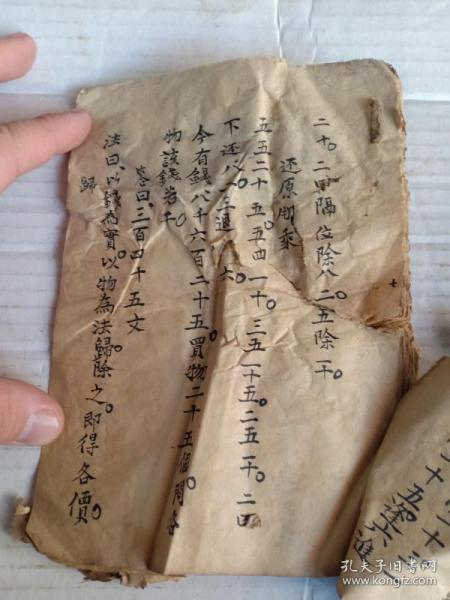 二十。二四隔位除八。二五除一十。
還原用乘
五五二十五。五四一十。三五一十五。二五一十。二四
下还八。二三退六。
今有錢八千六百二十五。買物二十五個。問各
物該錢若干。
荅曰。三百四十五文
法曰。以錢為實。以物為法。歸除之。即得各價。
歸
十五
孔夫子旧书网
www.kongfz.com